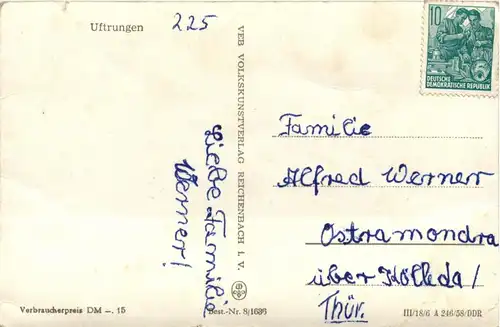 Uftrungen
225
10
DEUTSCHE
DEMOKRATISCHE REPUBLIK
VEB VOLKSKUNSTVERLAG REICHENBACH I. V.
Liebe Familie
Werner!
Familie
Alfred Werner
Ostramondra
über Kölleda/
Thür.
Verbraucherpreis DM -. 15
Best.-Nr. 8/1636
III/18/6 A 246/58/DDR